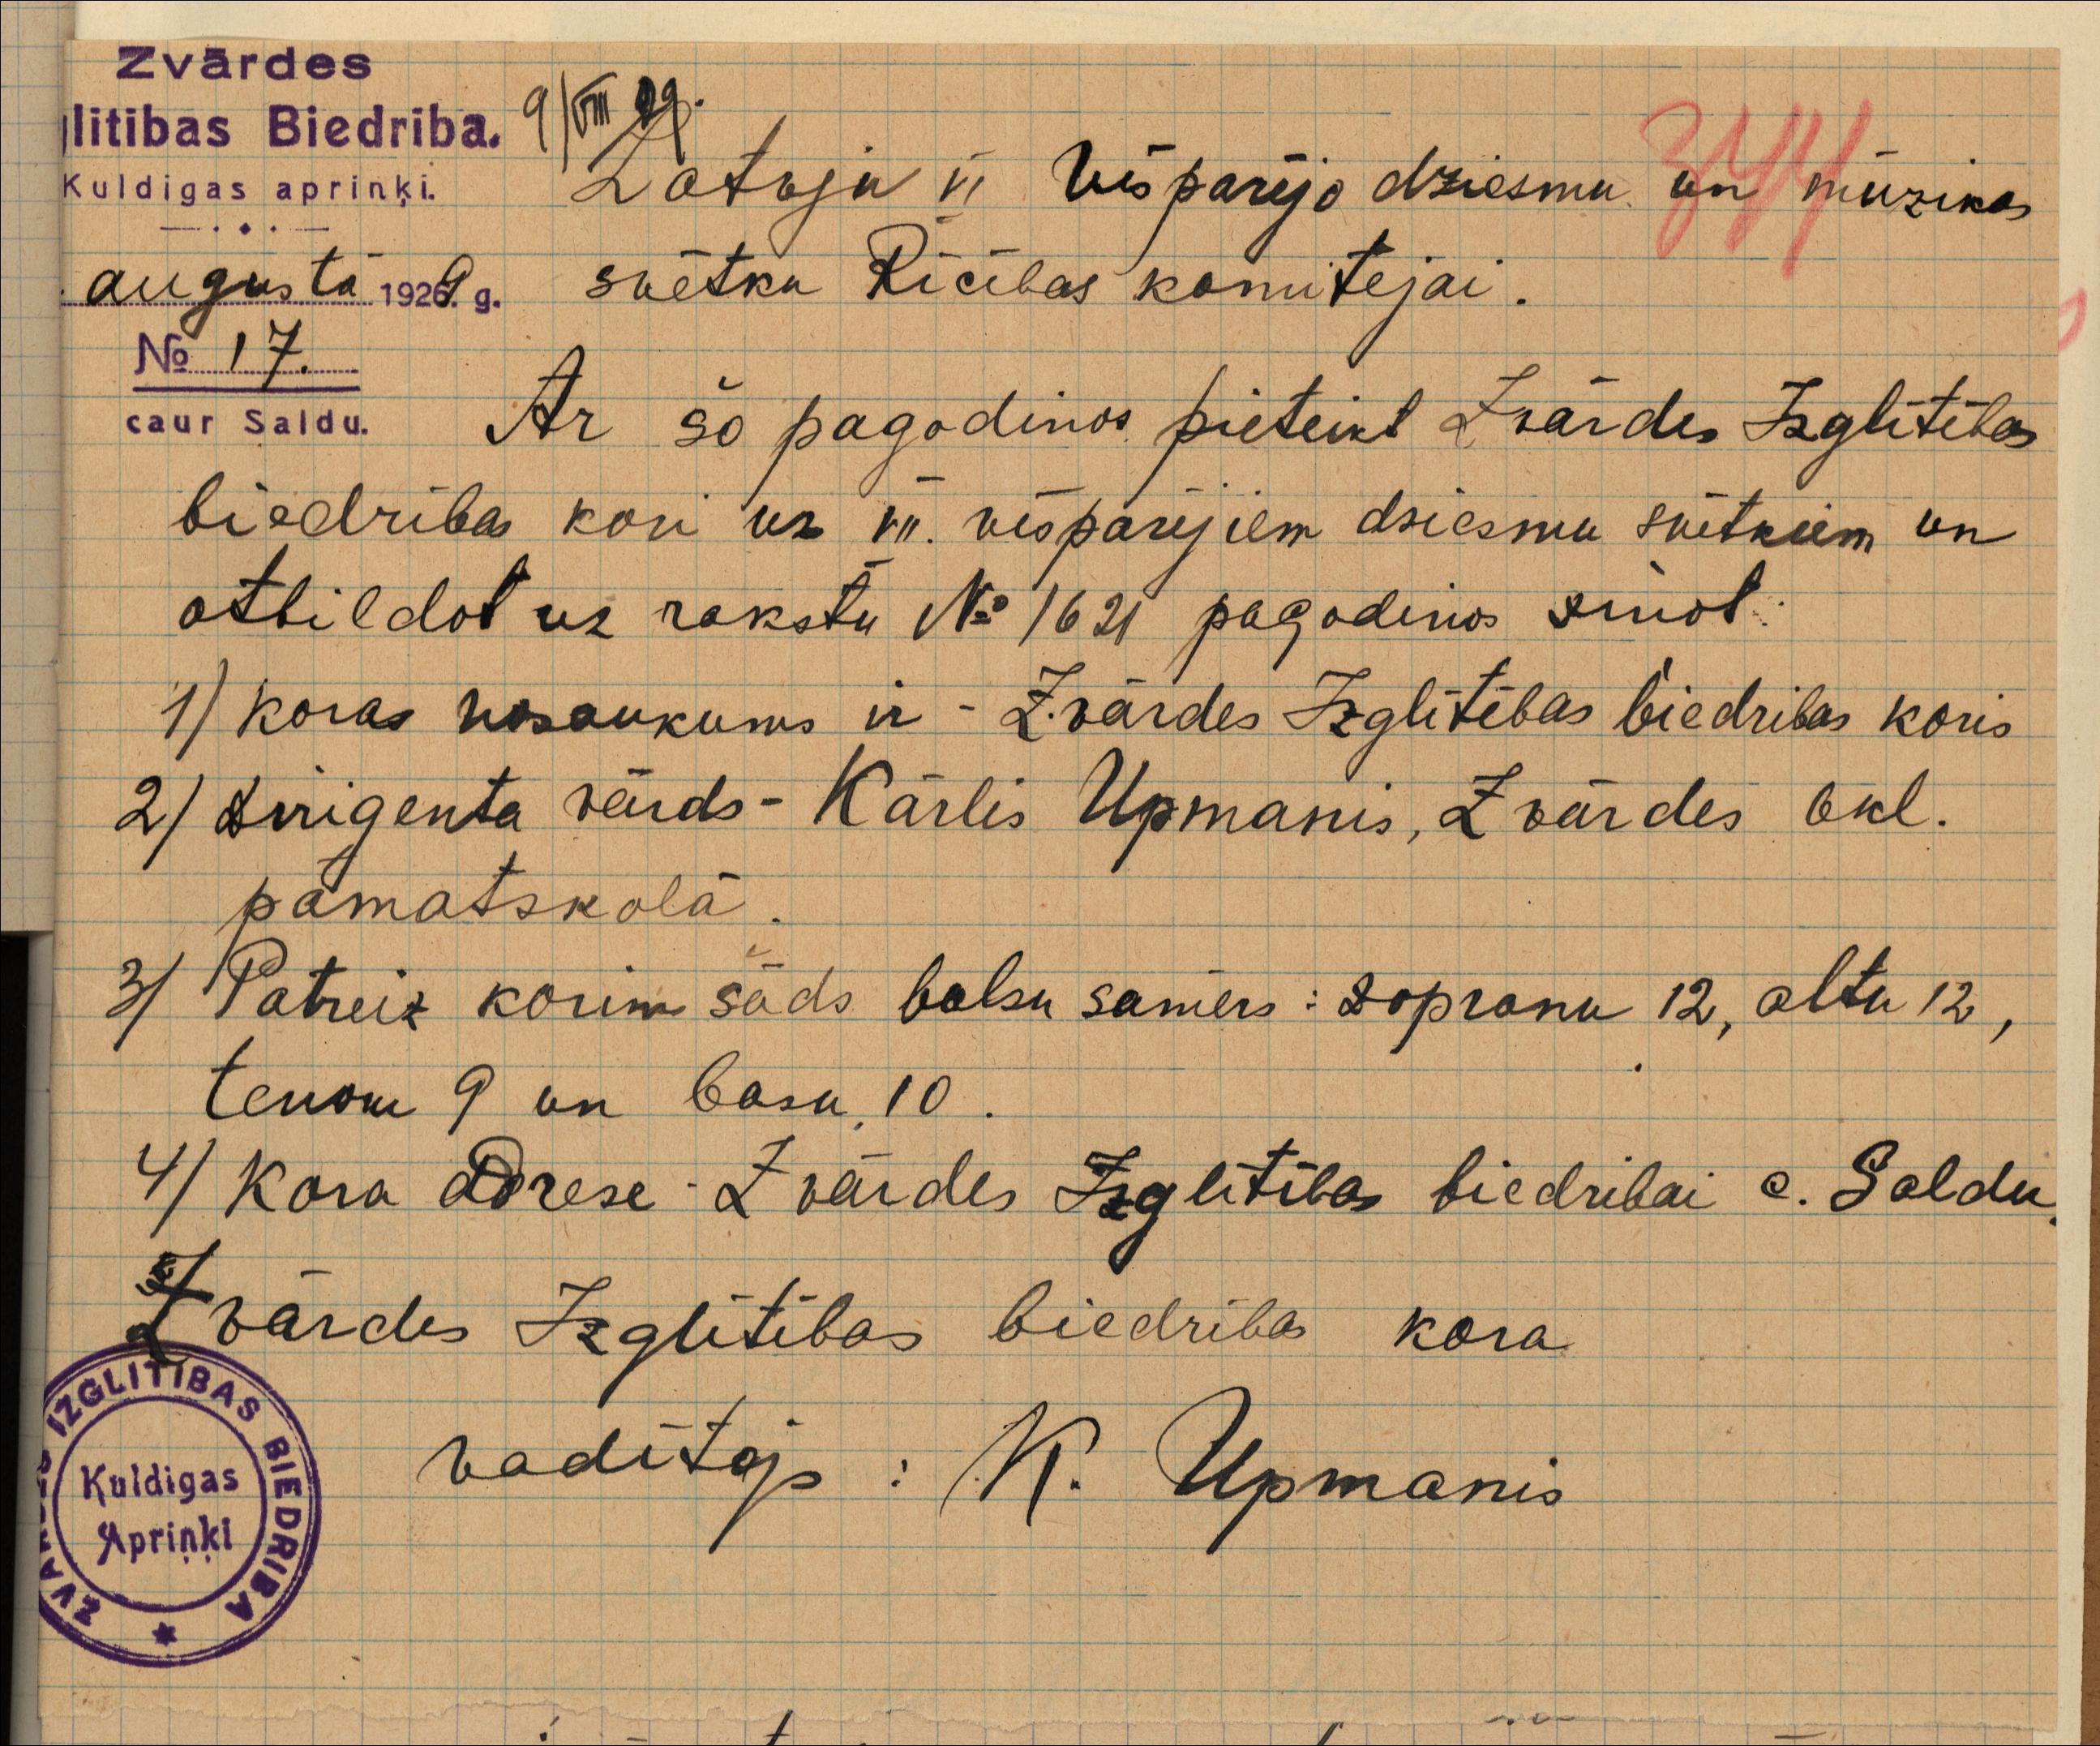 Zvārdes
glitibas Biedriba.
Kuldigas apriņķi.
augustā 1929. g.
№ 17.
caur Saldu.
9/VIII 29.
Latvju VI Vispārējo dziesmu un mūzikas
svētku Rīcības komitejai.
Ar šo pagodinos pieteikt Zvārdes Izglītības
biedrības kori uz VII. vispārējiem dziesmu svētkiem un
atbildot uz rakstu № 1621 pagodinos ziņot:
1) Koras nosaukums ir - Zvārdes Izglītības biedrības koris
2) Dirigenta vārds - Kārlis Upmanis, Zvārdes 6kl.
pamatskolā.
3) Patreiz korim šāds balsu samērs: sopranu 12, altu 12,
tenoru 9 un basu 10.
4) Kora adrese - Zvārdes Izglītības biedrībai c. Saldu.
Zvārdes Izglītības biedrības kora
vadītājs: K. Upmanis
ZVARDES IZGLITIBAS BIEDRIBA
Kuldigas
Apriņķi